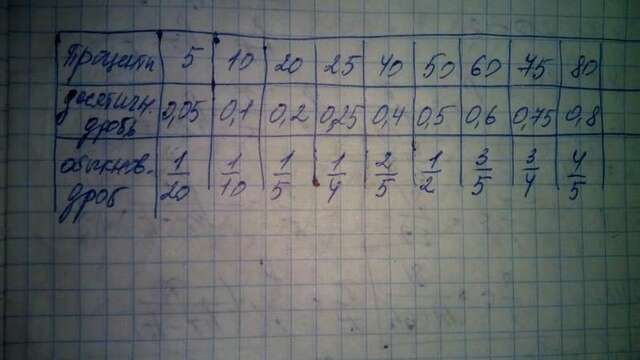 Проценты 5 10 20 25 40 50 60 75 80
десятичн. дробь 0,05 0,1 0,2 0,25 0,4 0,5 0,6 0,75 0,8
обыкнов. дроб 1/20 1/10 1/5 1/4 2/5 1/2 3/5 3/4 4/5